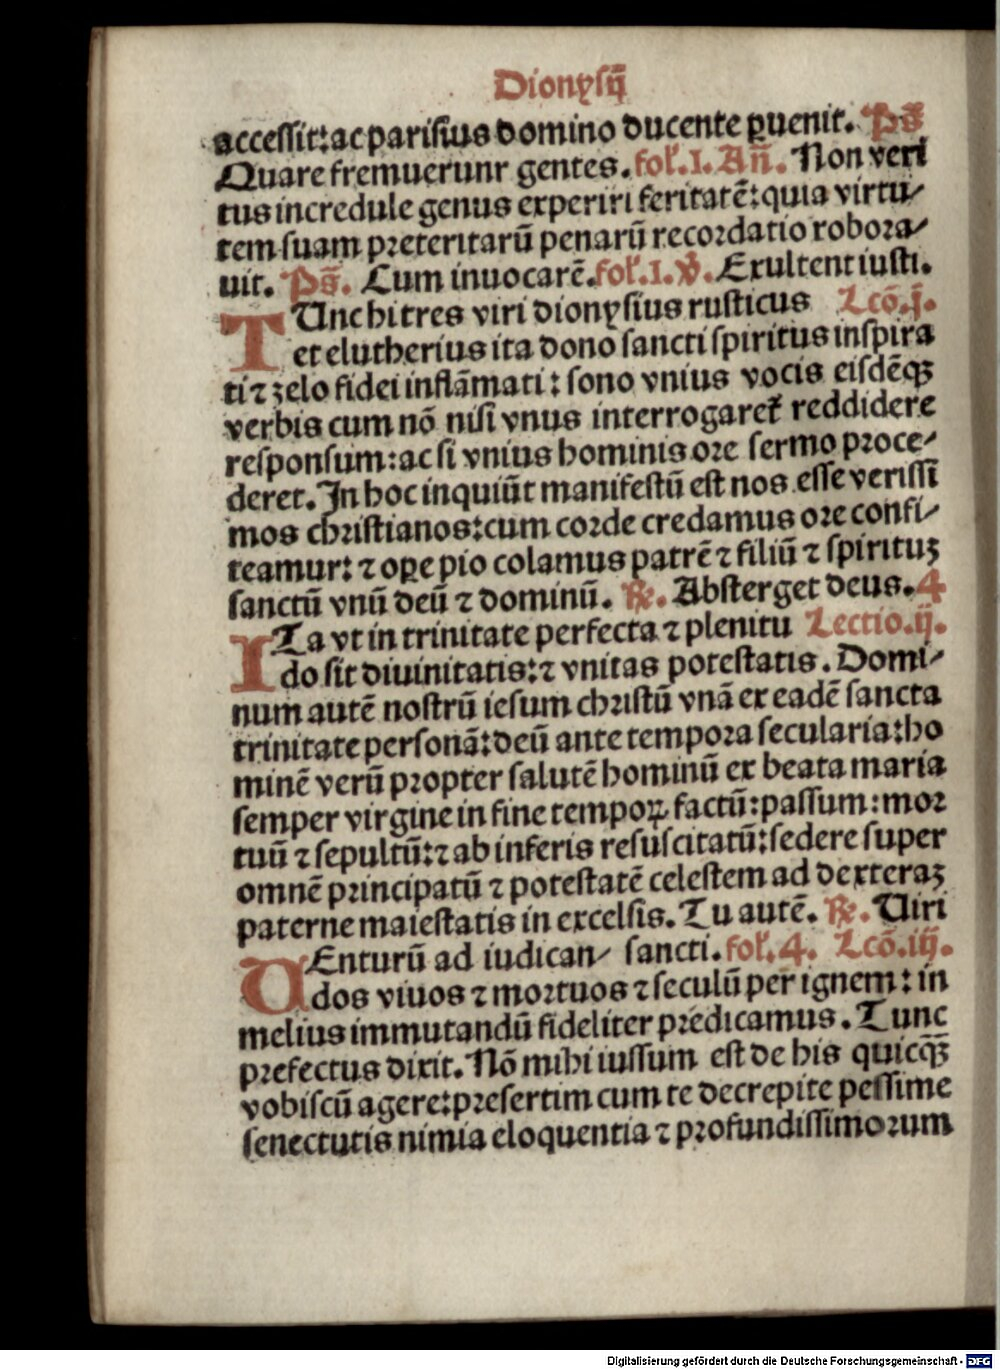 Dionysij
accessit: ac parisius domino ducente ꝑuenit. Ps̄
Quare fremuerunr gentes. fol'. 1. An̄. Non veri
tus incredule genus experiri feritatē: quia virtu/
tem suam preteritarū penarū recordatio robora/
uit. Ps̄. Cum inuocarē. fol'. 1. V̄. Exultent iusti.
TUnc hi tres viri dionysius rusticus Lcō. j.
et elutherius ita dono sancti spiritus inspira
ti ⁊ zelo fidei inflāmati: sono vnius vocis eisdēqꝫ
verbis cum nō nisi vnus interrogaret̄ reddidere
responsum: ac si vnius hominis ore sermo proce/
deret. In hoc inquiūt manifestū est nos esse verissi
mos christianos: cum corde credamus ore confi/
teamur: ⁊ oꝑe pio colamus patrē ⁊ filiū ⁊ spirituꝫ
sanctū vnū deū ⁊ dominū. ℞. Absterget deus. 4
ITa vt in trinitate perfecta ⁊ plenitu Lectio. ij.
do sit diuinitatis: ⁊ vnitas potestatis. Domi/
num autē nostrū iesum christū vnā ex eadē sancta
trinitate personā: deū ante tempora secularia: ho
minē verū propter salutē hominū ex beata maria
semper virgine in fine tempoꝝ factū: passum: mor
tuū ⁊ sepultū: ⁊ ab inferis resuscitatū: sedere super
omnē principatū ⁊ potestatē celestem ad dexteraꝫ
paterne maiestatis in excelsis. Tu autē. ℞. Uiri
UEnturū ad iudican/ sancti. fol'. 4. Lcō. iij.
dos viuos ⁊ mortuos ⁊ seculū per ignem: in
melius immutandū fideliter predicamus. Tunc
prefectus dixit. Nō mihi iussum est de his quicqꝫ̄
vobiscū agere: presertim cum te decrepite pessime
senectutis nimia eloquentia ⁊ profundissimorum
Digitalisierung gefördert durch die Deutsche Forschungsgemeinschaft - DFG